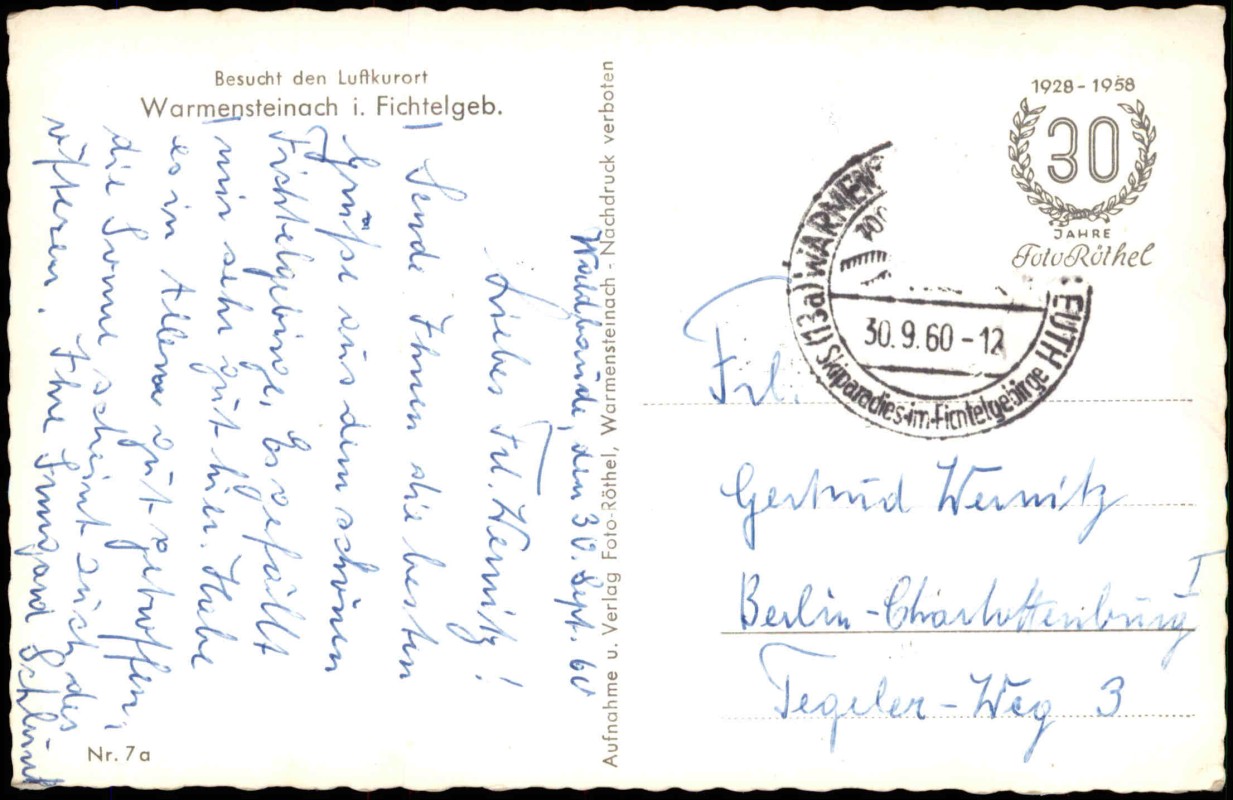 Besucht den Luftkurort
Warmensteinach i. Fichtelgeb.
Waldhaude, den 30. Sept. 60
Liebes Frl. Wernitz!
Sende Ihnen die besten
Grüße aus dem schönen
Fichtelgebirge, Es gefällt
mir sehr gut hier. Habe
es in Allem gut getroffen,
die Sonne scheint auch des
öfteren. Ihre Irmgard
Nr. 7a
Aufnahme u. Verlag Foto-Röthel, Warmensteinach - Nachdruck verboten
1928 - 1958
30
JAHRE
Foto Röthel
(13a) WARMEN
EUTH
30.9.60-12
Skiparadies-im-Fichtelgebirge
Frl.
Gertrud Wernitz
Berlin-Charlottenburg I
Tegeler-Weg 3